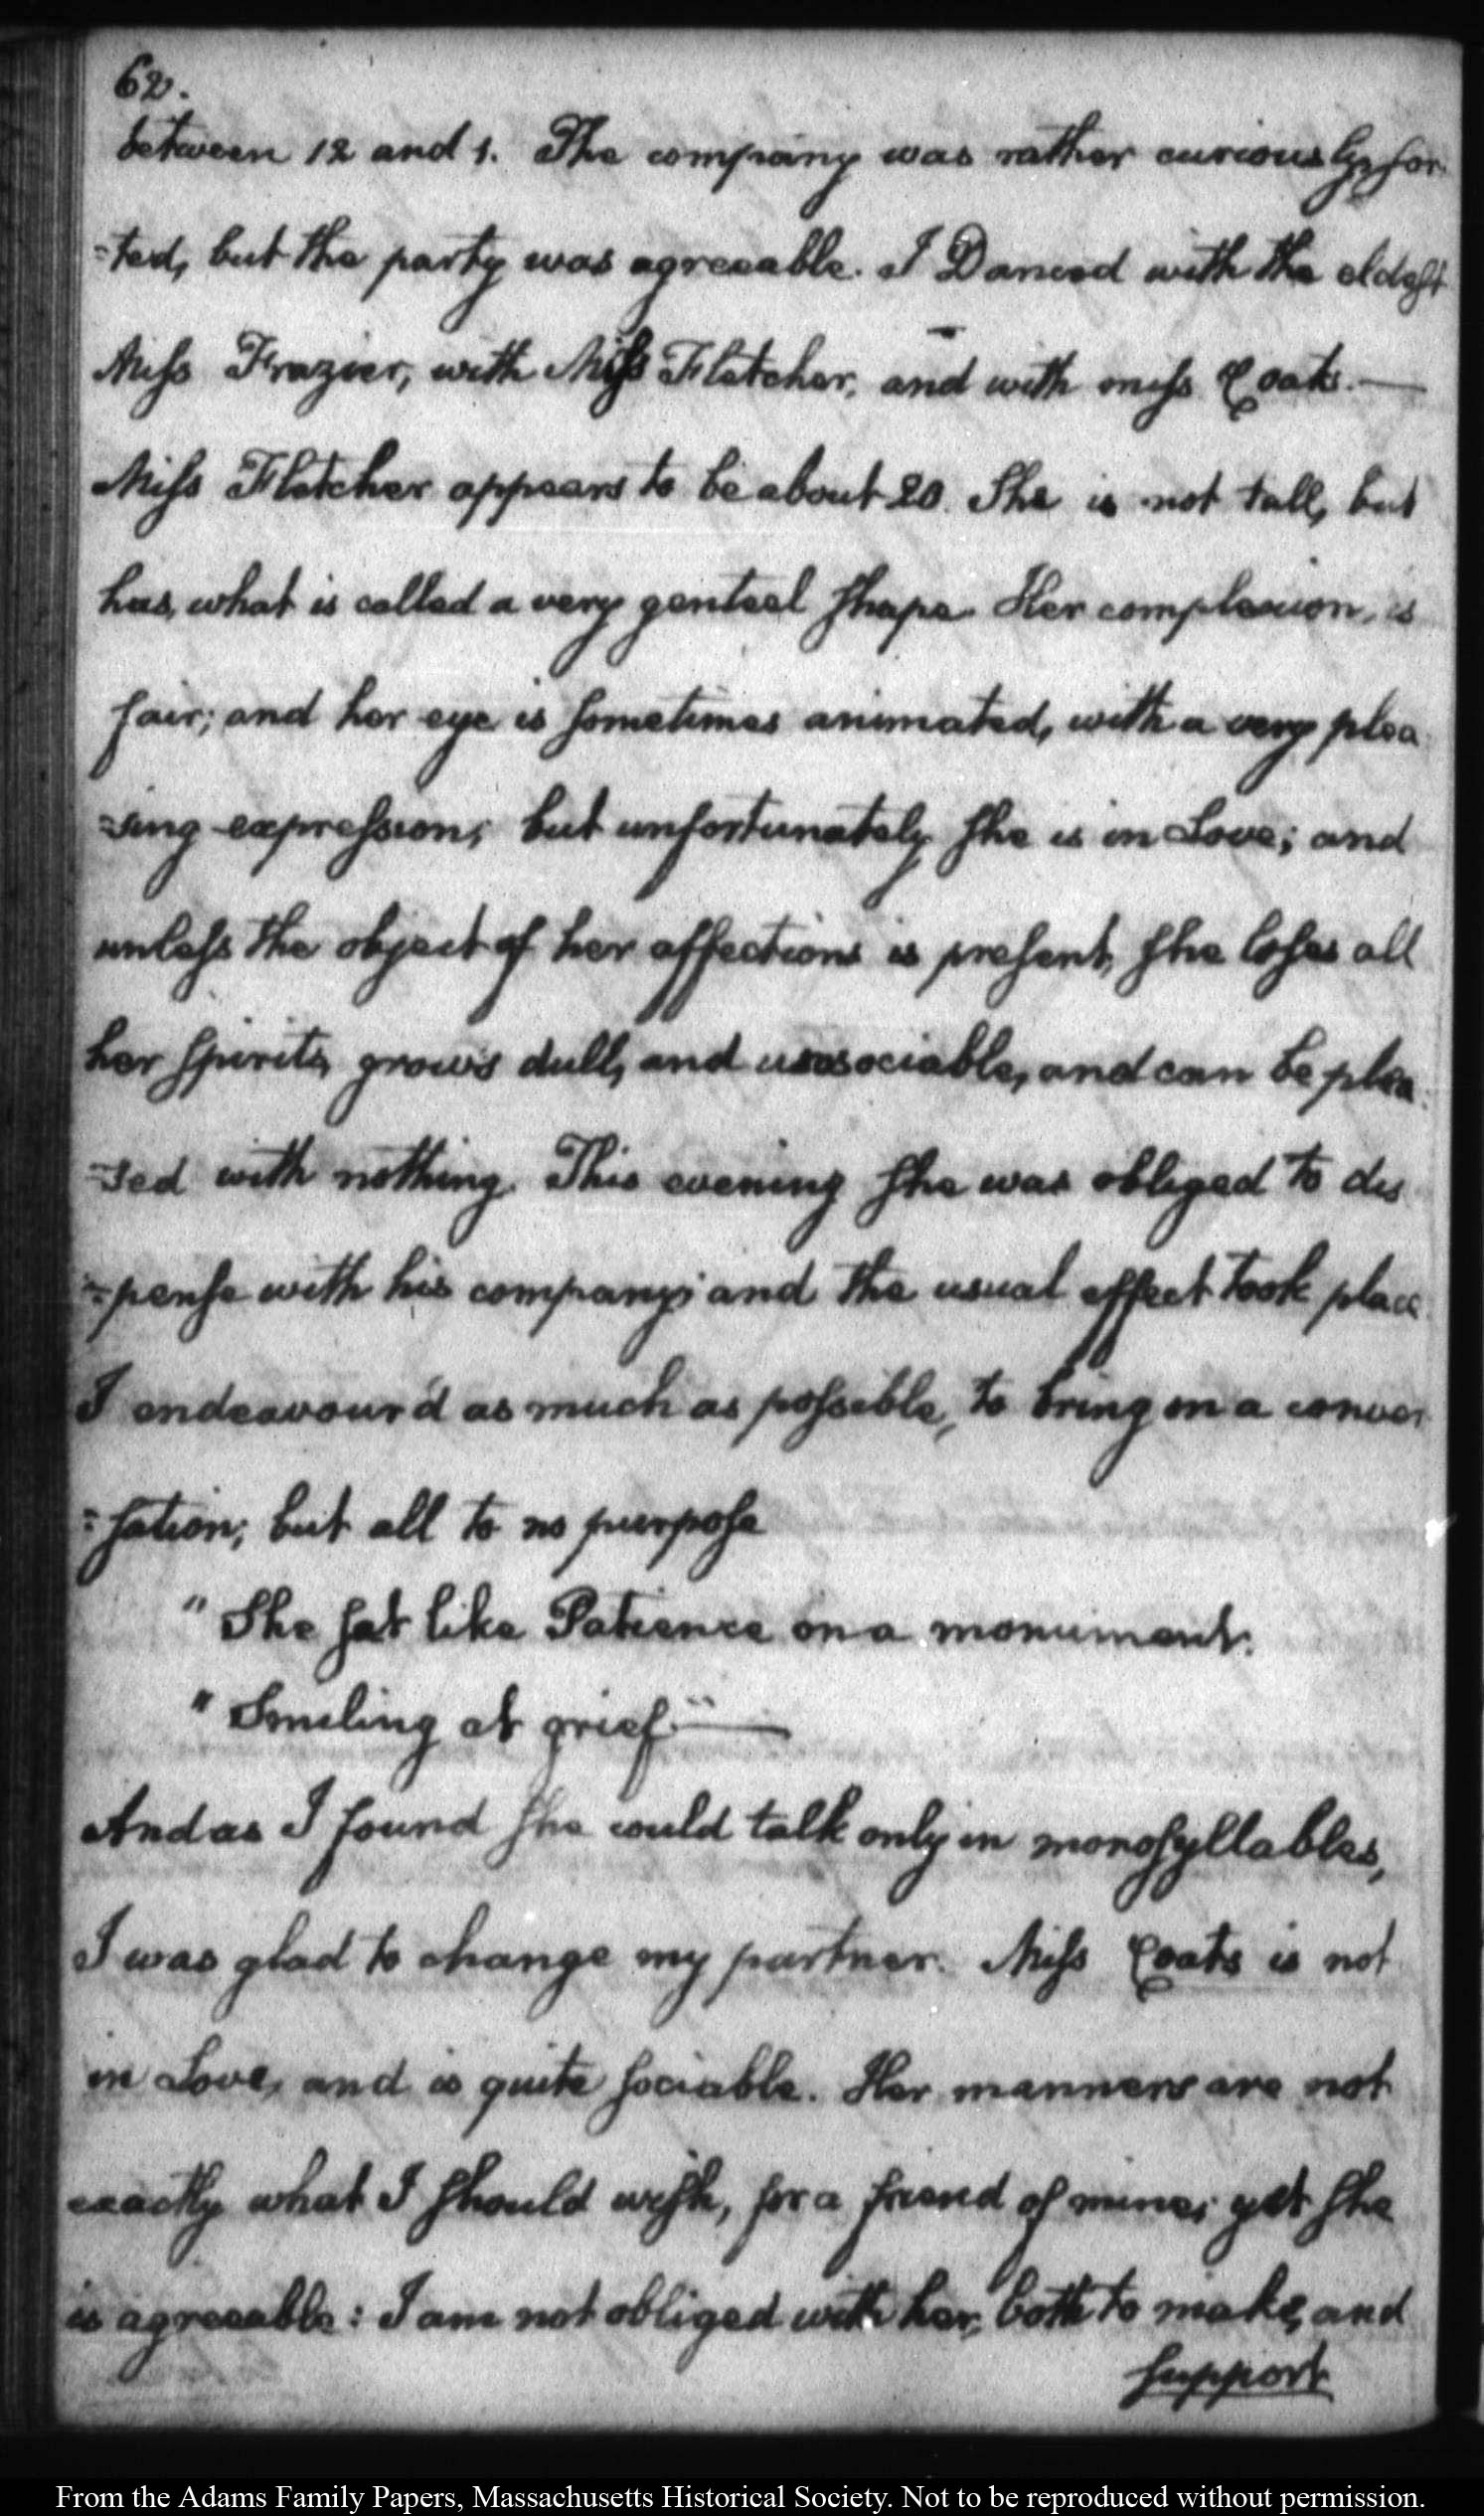 62.
between 12 and 1. The company was rather curiously sor
=ted, but the party was agreeable. I Danced with the eldest
Miss Frazier, with Miss Fletcher, and with miss Coats.—
Miss Fletcher appears to be about 20. She is not tall, but
has, what is called a very genteel shape. Her complexion, is
fair; and her eye is sometimes animated, with a very plea
=sing expression; but unfortunately she is in Love; and
unless the object of her affections is present, she loses all
her spirits, grows dull, and unsociable, and can be plea
=sed with nothing. This evening she was obliged to dis
=pense with his company; and the usual effect took place.
I endeavour'd as much as possible, to bring on a conver
=sation; but all to no purpose
" She sat like Patience on a monument.
" Smiling at grief."—
And as I found she could talk only in monosyllables,
I was glad to change my partner. Miss Coats is not
in Love, and is quite sociable. Her manners are not
exactly what I should wish, for a friend of mine; yet she
is agreeable: I am not obliged with her, both to make, and
support
From the Adams Family Papers, Massachusetts Historical Society. Not to be reproduced without permission.